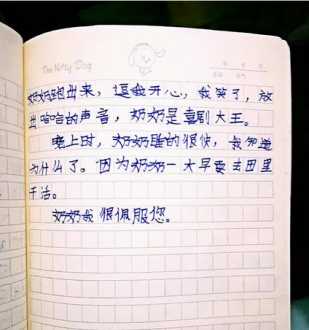 The Kitty Dog
奶奶跑出来，逗我开心，我笑了，放
出哈哈的声音，奶奶是喜剧大王。
晚上时，奶奶睡的很快，我知道
为什么了。因为奶奶一大早要去田里
干活。
奶奶我很佩服您。